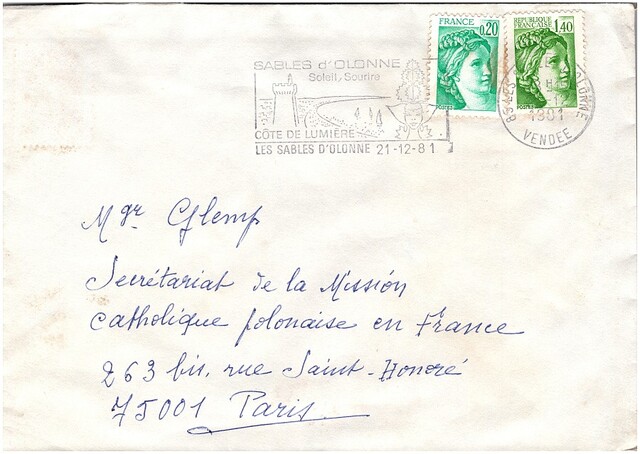 FRANCE
0,20
POSTES
RÉPUBLIQUE
FRANÇAISE
1,40
POSTES
SABLES d'OLONNE
Soleil, Sourire
CÔTE DE LUMIÈRE
LES SABLES D'OLONNE 21-12-81
OLONNE
VENDEE
Mgr Glemp
Secrétariat de la Missión
catholique polonaise en France
263 bis, rue Saint-Honoré
75001 Paris